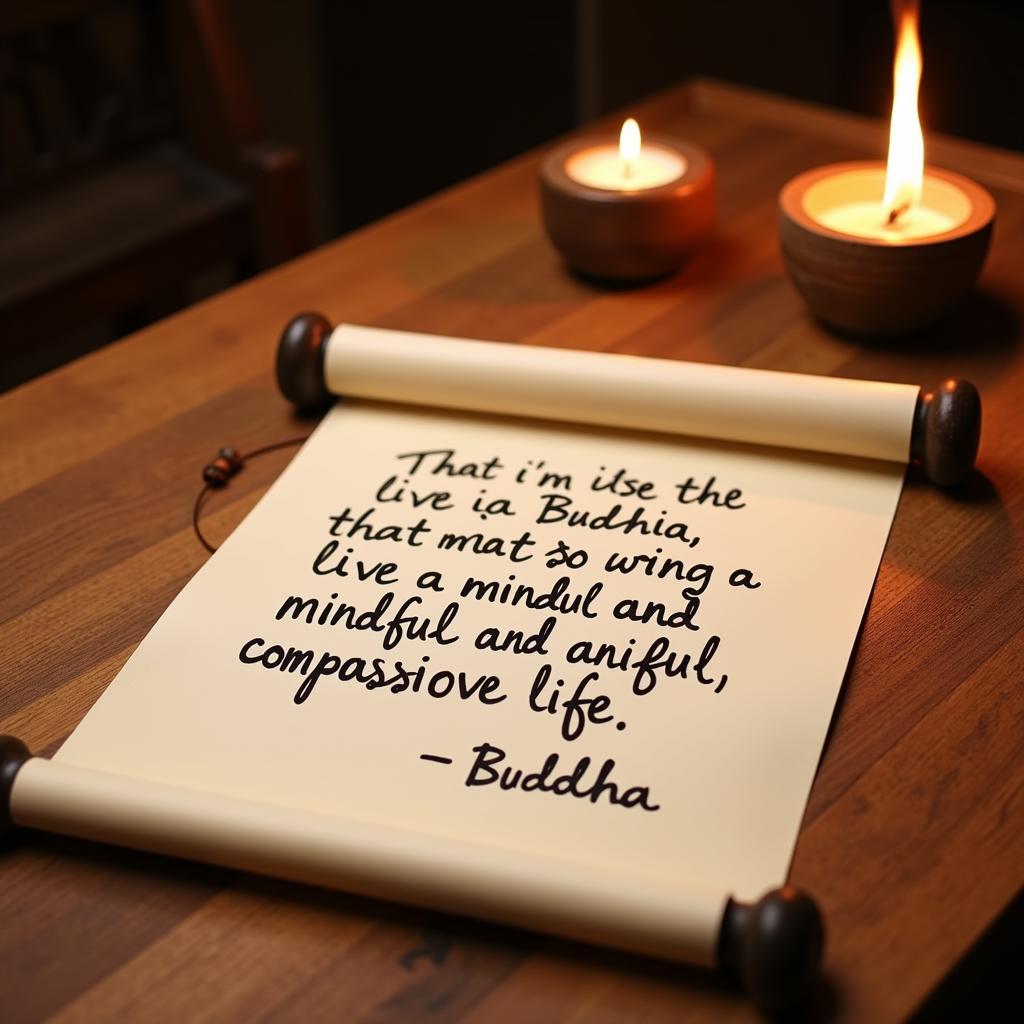 That i'm ilse the
live ịa Budhia,
that mat so wring a
live a mindul and
mindful and aniful,
compassiove life.
– Buddha